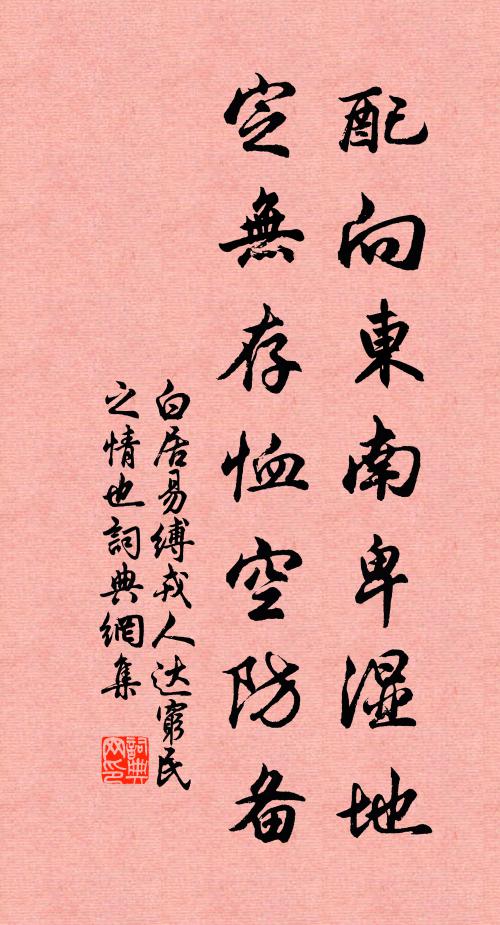 配向東南卑湿地
定無存恤空防备
白居易縛戎人达窮民
之情也詞典網集
詞典
网印